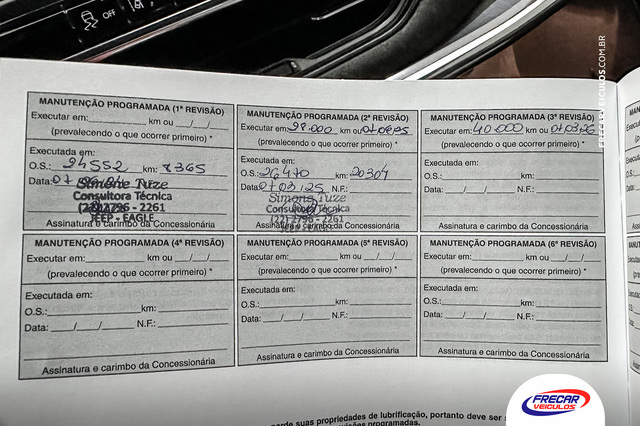 OFF
FRECARVEICULOS.COM.BR
MANUTENÇÃO PROGRAMADA (1ª REVISÃO)
Executar em: km ou __/__/__
(prevalecendo o que ocorrer primeiro) *
Executada em:
O.S.: 24552 km: 8365
Data: 07
Simone Tuze
Consultora Técnica
2796 - 2261
JEEP - EAGLE
Assinatura e carimbo da Concessionária
MANUTENÇÃO PROGRAMADA (2ª REVISÃO)
Executar em: 28.000 km ou
(prevalecendo o que ocorrer primeiro) *
Executada em:
O.S.: 26470 km: 20304
Data: 07 03 25 N.F.:
Simone Tuze
Consultora Técnica
2796 - 2261
Assinatura e carimbo da Concessionária
MANUTENÇÃO PROGRAMADA (3ª REVISÃO)
Executar em: 40.000 km ou 07 03 26
(prevalecendo o que ocorrer primeiro) *
Executada em:
O.S.: km:
Data: __/__/__ N.F.:
Assinatura e carimbo da Concessionária
MANUTENÇÃO PROGRAMADA (4ª REVISÃO)
Executar em: km ou __/__/__
(prevalecendo o que ocorrer primeiro) *
Executada em:
O.S.: km:
Data: __/__/__ N.F.:
Assinatura e carimbo da Concessionária
MANUTENÇÃO PROGRAMADA (5ª REVISÃO)
Executar em: km ou __/__/__
(prevalecendo o que ocorrer primeiro) *
Executada em:
O.S.: km:
Data: __/__/__ N.F.:
Assinatura e carimbo da Concessionária
MANUTENÇÃO PROGRAMADA (6ª REVISÃO)
Executar em: km ou __/__/__
(prevalecendo o que ocorrer primeiro) *
Executada em:
O.S.: km:
Data: __/__/__ N.F.:
Assinatura e carimbo da Concessionária
suas propriedades de lubrificação, portanto deve ser
programadas.
FRECAR
VEICULOS